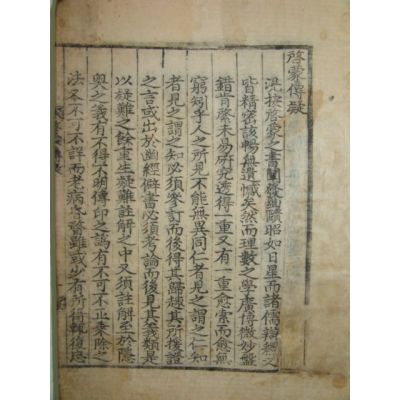 啓蒙傳疑
滉按啓蒙之書闡發幽賾昭如日星而諸儒辯釋又
皆精密該暢無遺憾矣然而理數之學廣博微妙盤
錯肯綮未易硏究透得一重又有一重愈索而愈無
窮矧乎人之所見不能無異同仁者見之謂之仁知
者見之謂之知必須參訂而後得其歸趣其所援證
之言或出於幽經僻書必須考論而後見其義類是
以疑難之餘重生疑難註解之中又須註解至於隱
奧之義有不得不明傳印之訛有不可不正乘除之
法又不可不詳而老病忘瞀雖或少有所得輒復忘